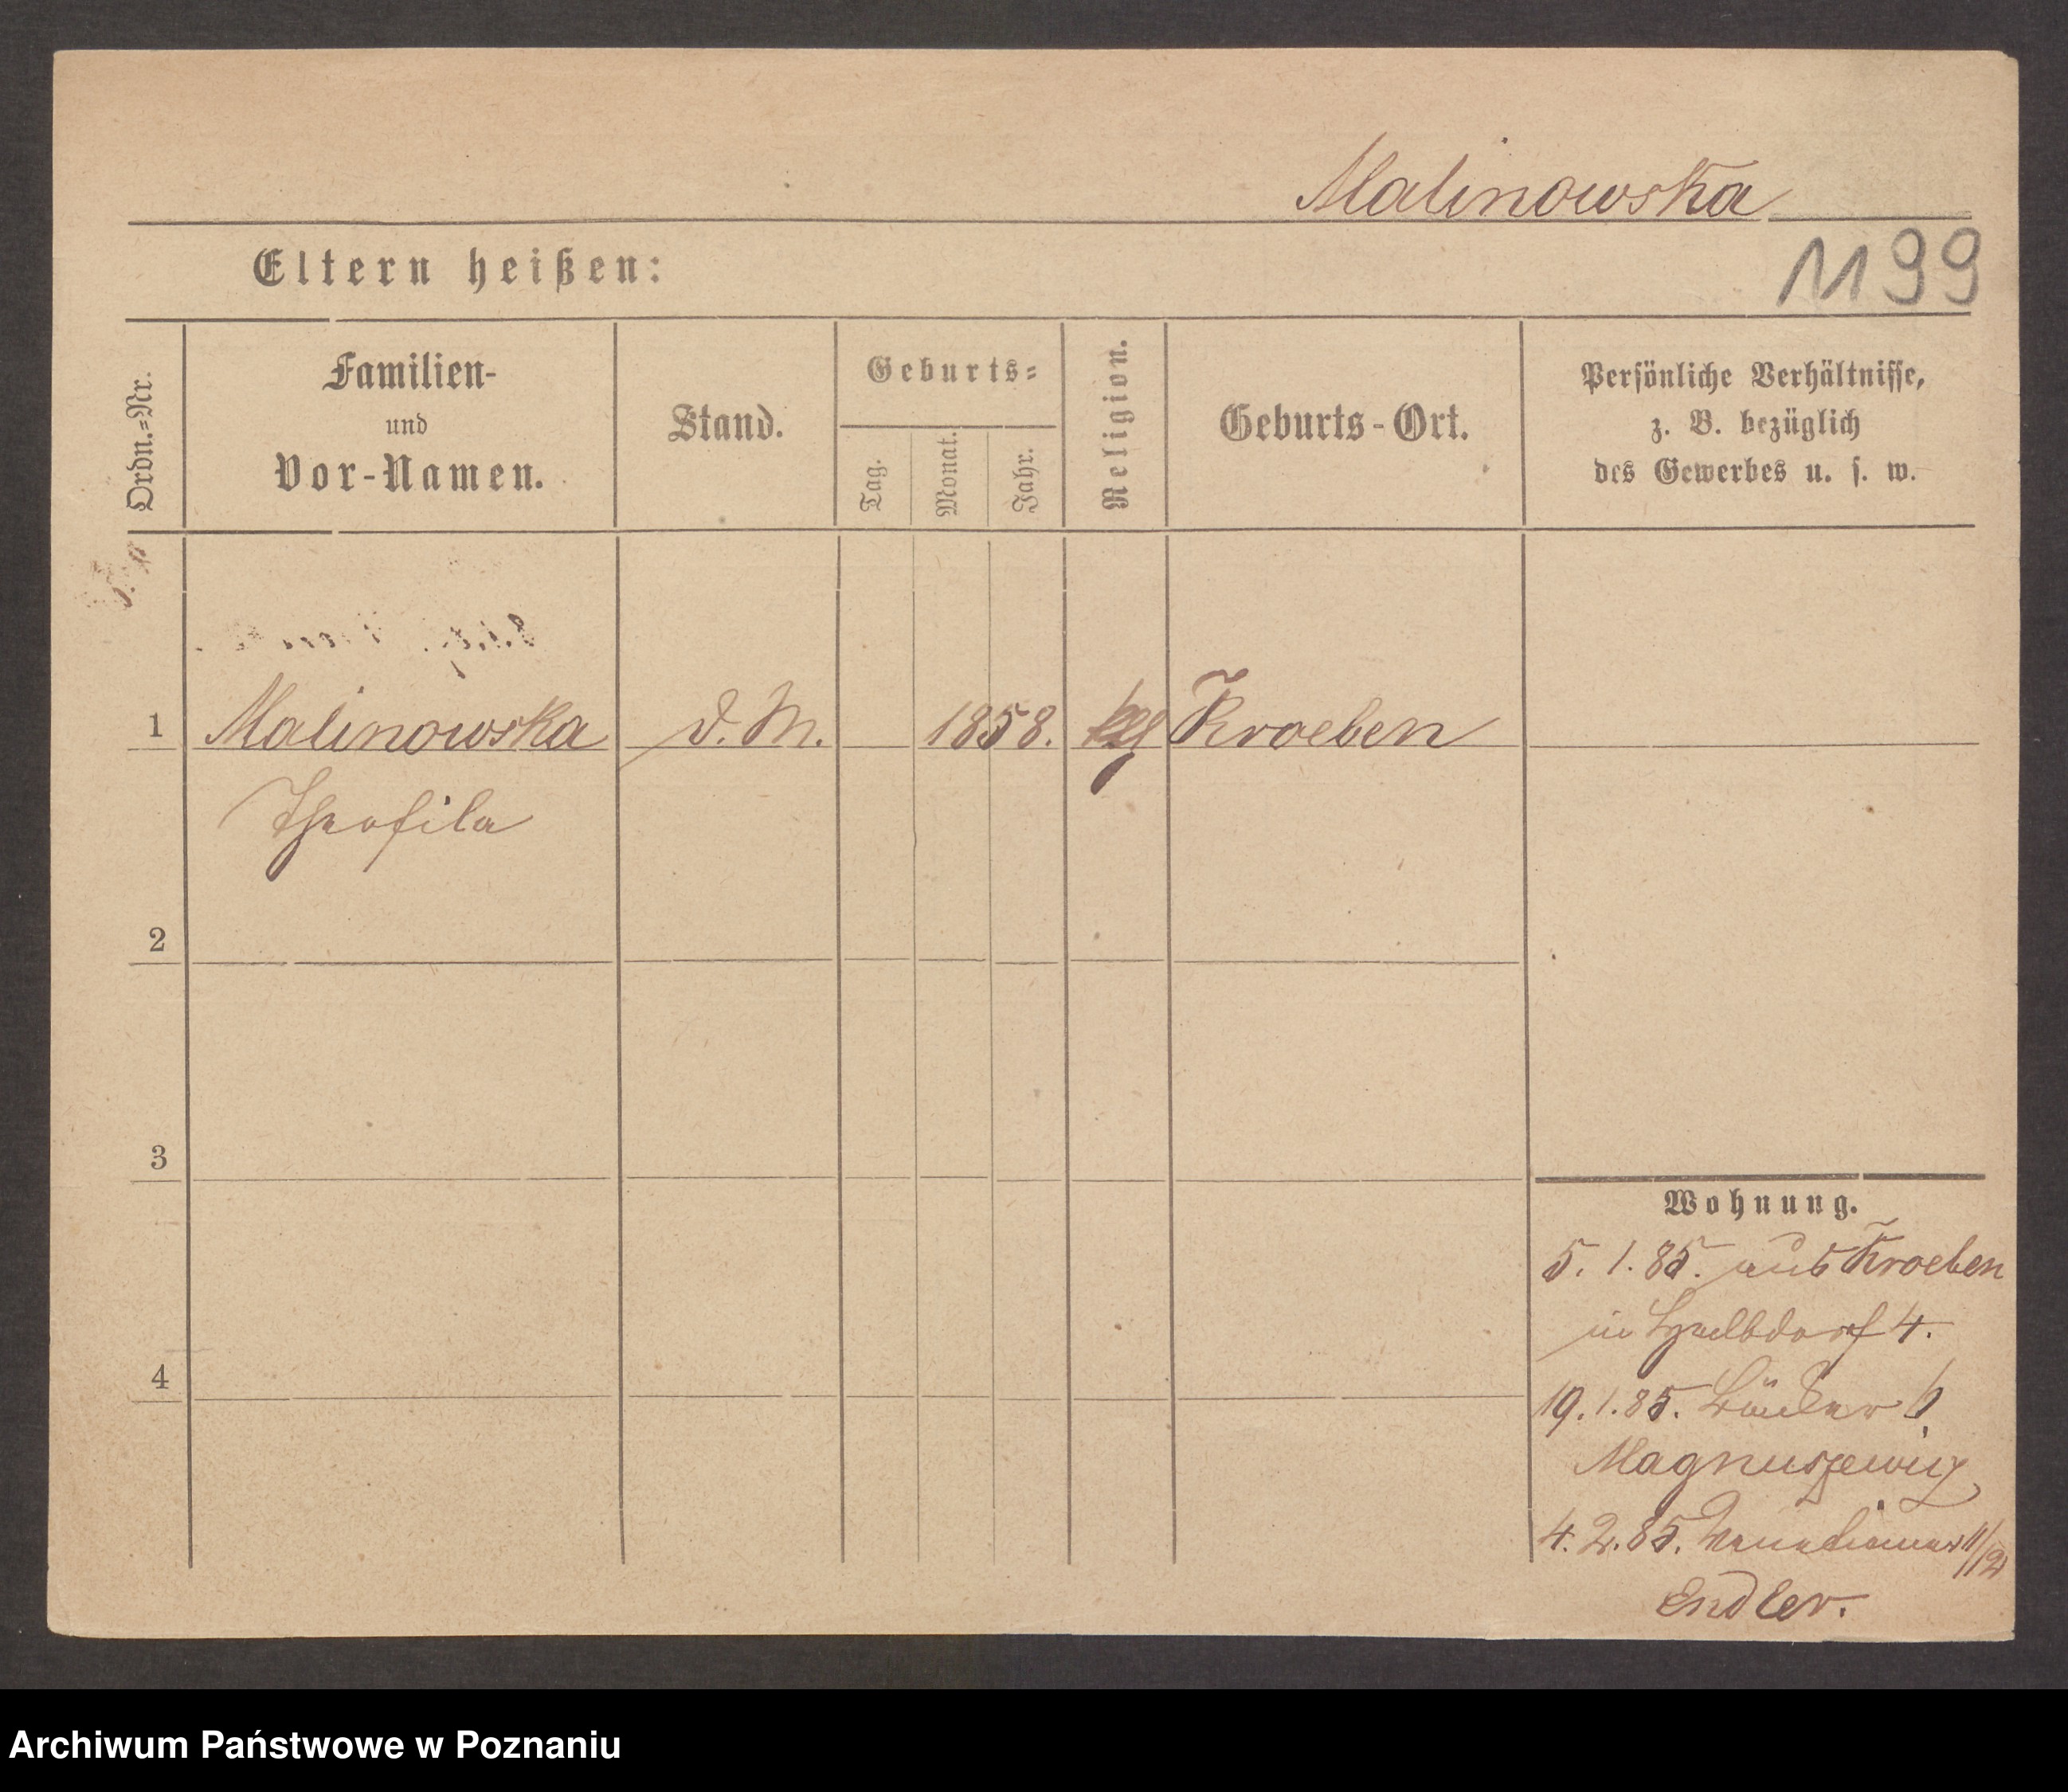 Malinowska
1199
Eltern heißen:
Ordn.=Nr.
Familien-
und
Vor-Namen.
Stand.
Geburts=
Tag.
Monat.
Jahr.
Religion.
Geburts-Ort.
Persönliche Verhältnisse,
z. B. bezüglich
des Gewerbes u. s. w.
1 Malinowska D. M. 1858. Kroeben
Theofila
2
3
4
Wohnung.
5. 1. 85. aus Kroeben
in
19. 1. 85. 6
4. 2. 85.
Endler.
Archiwum Państwowe w Poznaniu